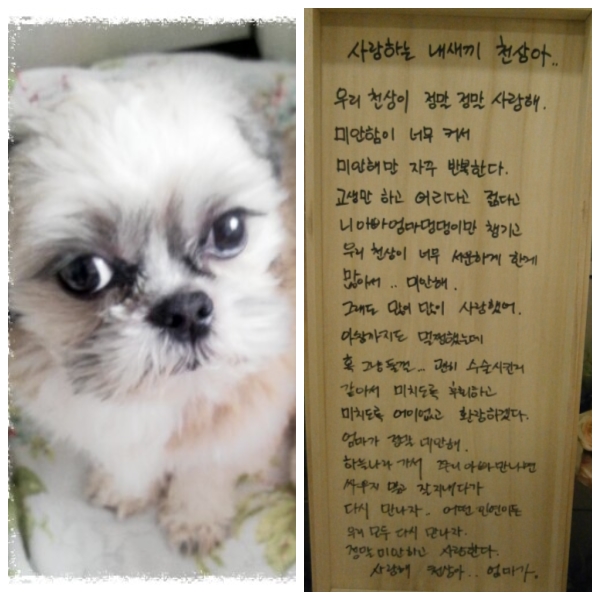 사랑하는 내새끼 천상아..
우리 천상이 정말 정말 사랑해.
미안함이 너무 커서
미안해만 자꾸 반복한다.
고생만 하고 어리다고 겁다고
니 아빠엄마댕댕이만 챙기고
우리 천상이 너무 서운하게 한게
많아서.. 미안해.
그래도 많이 많이 사랑했어.
아침까지도 멀쩡했는데
혹 그냥 둘껄... 괜히 수술시킨거
같아서 미치도록 후회하고
미치도록 어이없고 환장하겠다.
엄마가 정말 미안해.
하늘나라 가서 쭈니 아빠 만나면
싸우지 말고 잘 지내다가
다시 만나자. 어떤 인연이든
우리 모두 다시 만나자.
정말 미안하고 사랑한다.
사랑해 천상아.. 엄마가.